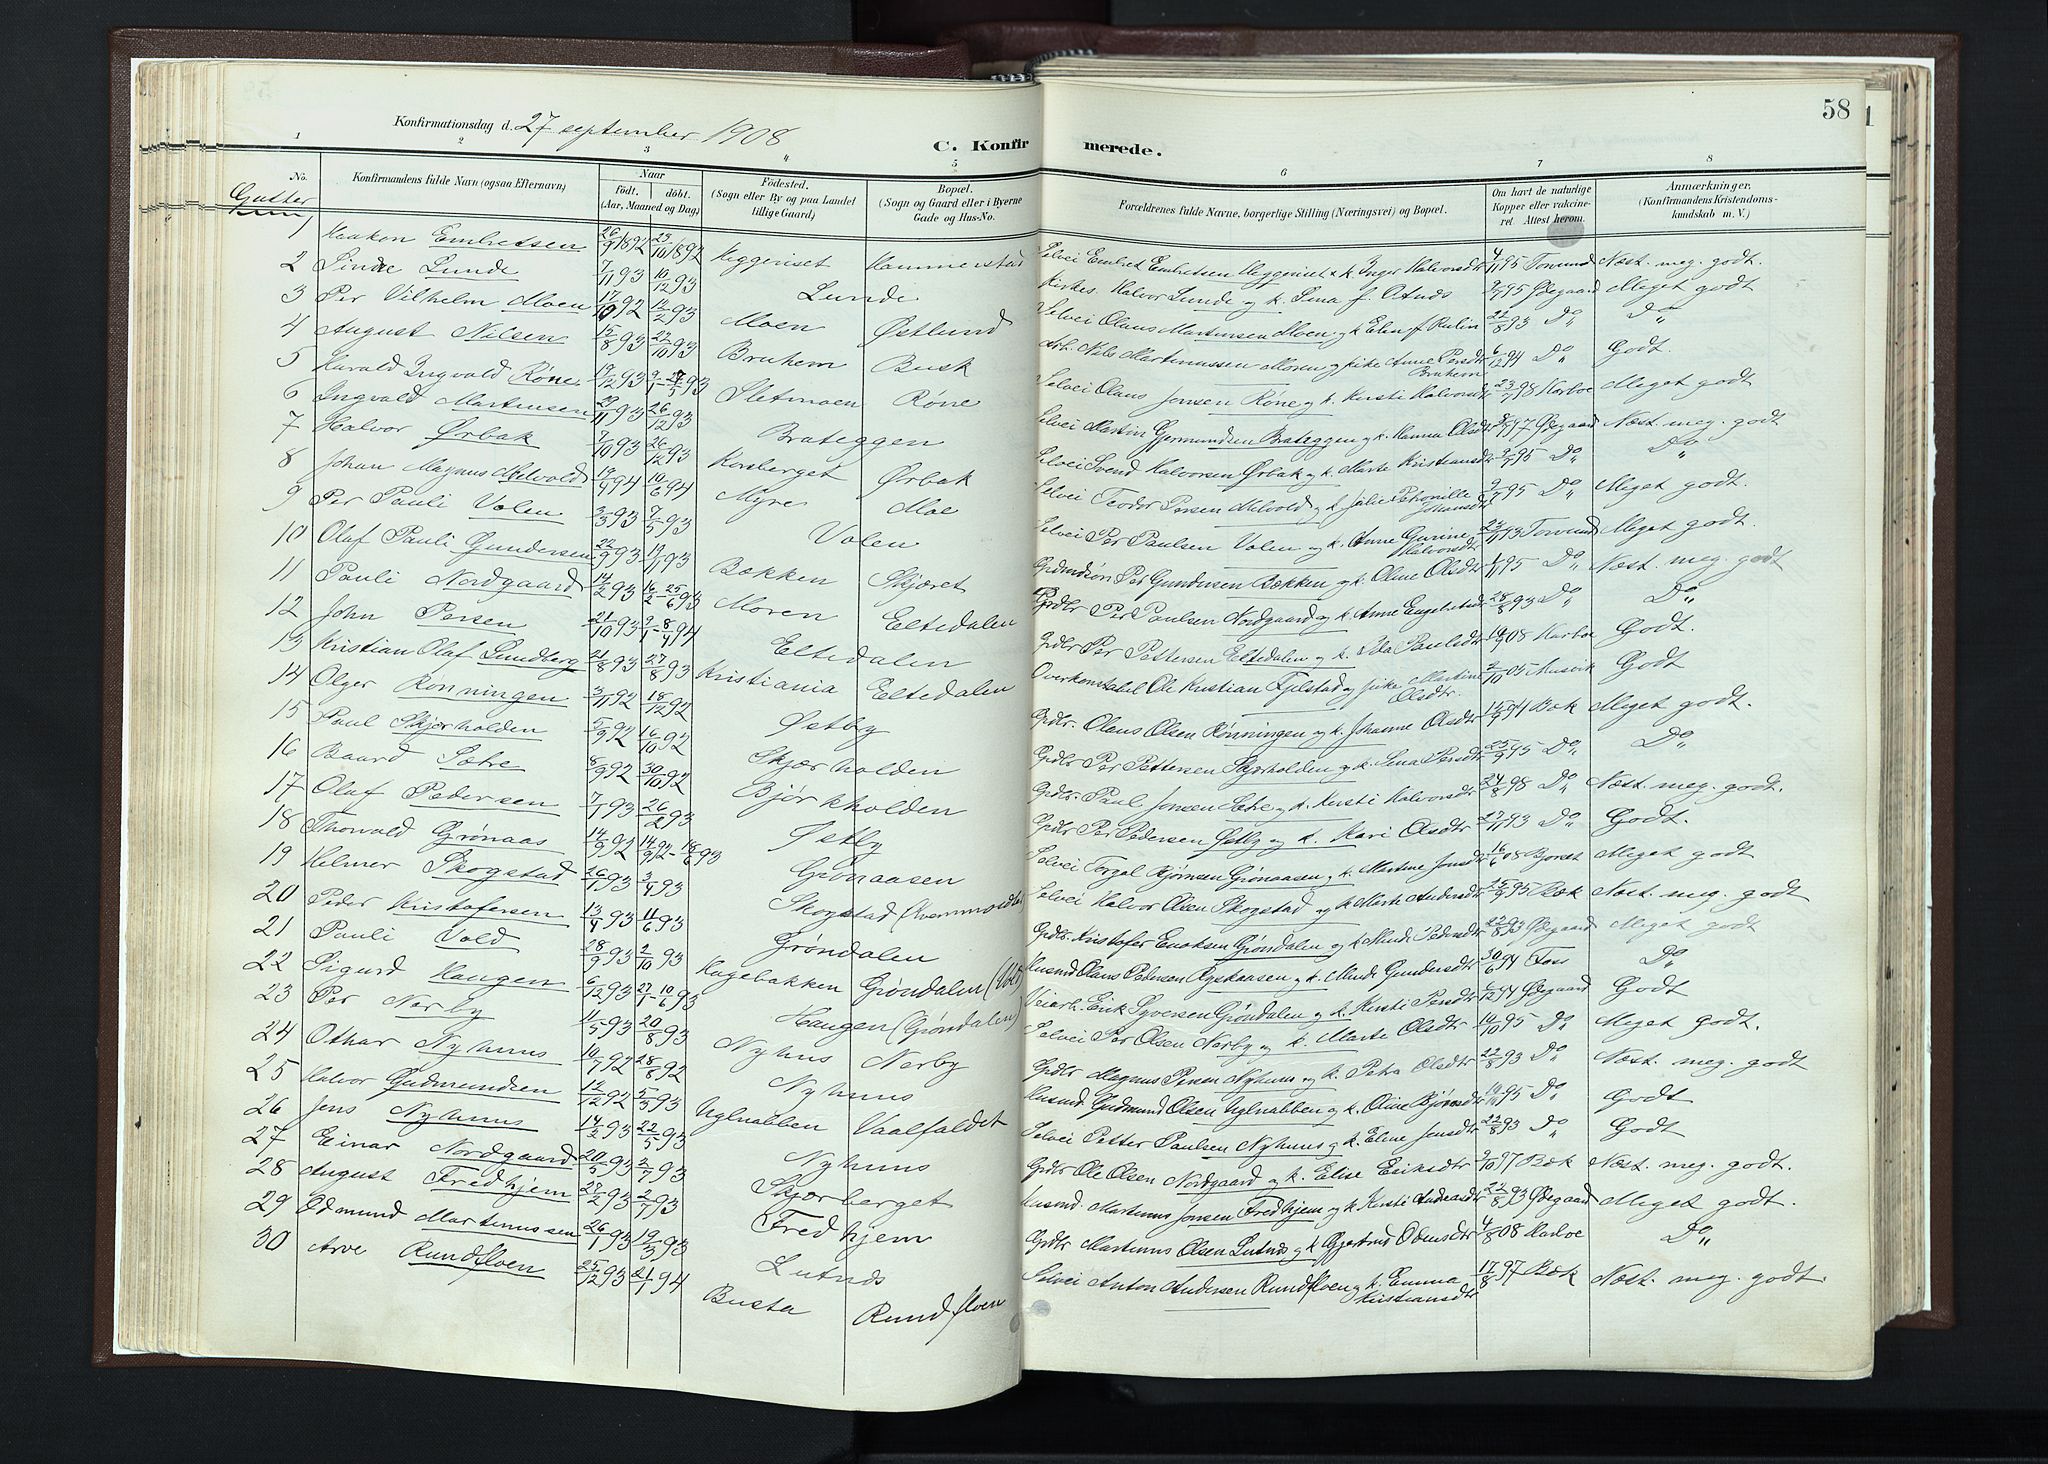 58
Konfirmationsdag d. 27 september 1908
C. Konfirmerede.
1 2 3 4 5 6 7 8
No. Konfirmandens fulde Navn (ogsaa Efternavn) Naar födt. döbt. (Aar, Maaned og Dag) Födested. (Sogn eller By og paa Landet tillige Gaard) Bopæl. (Sogn og Gaard eller i Byerne Gade og Hus-No. Forældrenes fulde Navne, borgerlige Stilling (Næringsvei) og Bopæl. Om havt de naturlige Kopper eller vaccineret. Attest herom. Anmærkninger. (Konfirmandens Kristendomskundskab m. V.)
Gutter
1 Haakon Embretsen 26/9 1892 23/10 1892 Heggeriset Hammerstad Selvei Embret Embretsen Heggeriset & k. Inger Halvorsdtr 4/11 95 Torvund Næst. meg. godt.
2 Sindre Lunde 7/11 93 10/12 93 Lunde Kirkes. Halvor Lunde og k. Lena f. Ødegaard Meget godt
3 Per Vilhelm Moen 17/10 92 12/2 93 Moen Østlund Selvei Olaus Martinsen Moen og k Elen f. 22/8 93 Do Do
4 August Nilsen 15/8 93 22/10 93 Bruhem Busk Arb. Nils Martinussen Moren og pike Anne Persdtr Bruhem 6/12 94 Do Godt.
5 Harald Ingvald Røne 19/12 93 Sletmoen Røne Selvei Olaus Jonsen Røne og k. Kersti Halvorsdtr 23/7 98 Karboe Meget godt
6 Ingvald Martinsen 29/11 93 26/12 93 Brateggen Selvei Martin Gjermundsen Brateggen og k. Hanna Olsdtr 97 Ødegaard Næst. meg. godt
7 Halvor Ørbak 7/10 93 26/12 93 Korsberget Ørbak Selvei Svend Halvorsen Ørbak og k. Marte Kristiansdtr 95 Do Do
8 Johan Magnus Melvold 19/4 94 10/6 94 Myre Moe Selvei Teodor Persen Melvold og k Julie Petronille Johansdtr 95 Do Meget godt.
9 Per Pauli Volen 3/3 93 7/5 93 Volen Selvei Per Paulsen Volen og k. Anne Gurine Halvorsdtr 23/11 93 Torvund Meget godt.
10 Olaf Pauli Gundersen 22/9 93 19/11 93 Bækken Skjæret Grdmdsøn Per Gundersen Bækken og k. Oline Olsdtr 95 Do Næst. meg. godt
11 Pauli Nordgaard 14/2 93 16/2 - 25/6 93 Moren Eltedalen Grdbr Per Paulsen Nordgaard og k. Anne Engebretsdtr 28/8 93 Do Do
12 John Persen 21/10 93 2/1 - 8/4 94 Eltedalen Grdbr Per Pettersen Eltedalen og k. Ida Paulsdtr 08 Karboe Godt.
13 Kristian Olaf Lundberg 21/8 93 27/8 93 Kristiania Eltedalen Overkonstabel Ole Kristian Fjelstad og pike Martine Olsdtr. 2/10 05 Godt
14 Olger Rønningen 3/11 92 18/12 92 Østby Grdbr. Olaus Olsen Rønningen og k. Johanne Olsdtr 14/9 94 Bæk Meget godt.
15 Paul Skjærholden 5/9 92 16/10 92 Skjærholden Grdbr Per Pettersen Skjærholden og k. Lena Persdtr 25/9 95 Do Do
16 Baard Sætre 8/9 92 30/10 92 Bjørkholden Grdbr. Paul Jonsen Sætre og k. Kersti Halvorsdtr 24/8 98 Do Næst. meg. godt.
17 Olaf Pedersen 7/1 93 26/2 93 Østby Grdbr Per Pedersen Østby og k. Kari Olsdtr 93 Do Godt.
18 Thorvald Grønaas 14/9 92 14/9 92 - 18/6 93 Grønaasen Selvei Torgal Bjørnsen Grønaasen og k. Martine Jonsdtr 16/6 08 Meget godt
19 Helmer Skogstad 26/1 93 3/4 93 Skogstad Selvei Halvor Olsen Skogstad og k. Marte Andersdtr 95 Bæk Næst. meg. godt
20 Peder Kristofersen 13/4 93 11/6 93 Grøndalen Grdbr. Kristofer Enoksen Grøndalen og k Minde Pedersdtr 22/8 93 Ødegaard Meget godt
21 Pauli Vold 28/9 93 2/10 93 Hagebakken Grøndalen Husmd Olaus Pedersen og k. Minde Gundersdtr 30/6 94 Foss Do
22 Sigurd Haugen 6/12 93 27/1 - 10/6 93 Haugen (Grøndalen) Veiarb. Erik Syversen Grøndalen og k. Kersti Persdtr 94 Ødegaard Godt
23 Per Nerby 11/5 93 20/8 93 Nyhus Nerby Selvei Per Olsen Nerby og k. Marte Olsdtr 14/10 95 Do Meget godt.
24 Othar Nyhuus 14/7 92 28/8 92 Nyhuus Grdbr Magnus Persen Nyhuus og k. Petra Olsdtr 22/8 93 Do Næst. meg. godt
25 Halvor Gudmundsen 12/12 92 5/3 93 Uglnabben Vaalfaldet Husmd. Gudmund Olsen Uglnabben og k. Oline Bjørnsdtr 95 Do Godt
26 Jens Nyhuus 14/2 93 22/5 93 Nyhuus Selvei Petter Paulsen Nyhuus og k. Eline Jonsdtr 22/8 93 Do Godt
27 Einar Nordgaard 20/5 93 2/7 93 Skjærberget Grdbr Ole Olsen Nordgaard og k. Elise Eriksdtr 2/10 97 Bæk Næst. meg. godt.
28 August Fredhjem 27/2 93 2/7 93 Fredhjem Husmd. Martinus Jonsen Fredhjem og k Kersti Andreasdtr 22/8 93 Ødegaard Meget godt.
29 Edmund Martinussen 26/1 93 19/3 93 Lutnes Grdbr Martinus Olsen Lutnes og k Gjertrud Olsdtr 4/8 08 Karboe Do
30 Arve Rundfloen 25/12 93 21/1 94 Busta Rundfloen Selvei Anton Andersen Rundfloen og k. Emma Kristiansdtr 17/8 97 Bæk Næst. meg. godt.